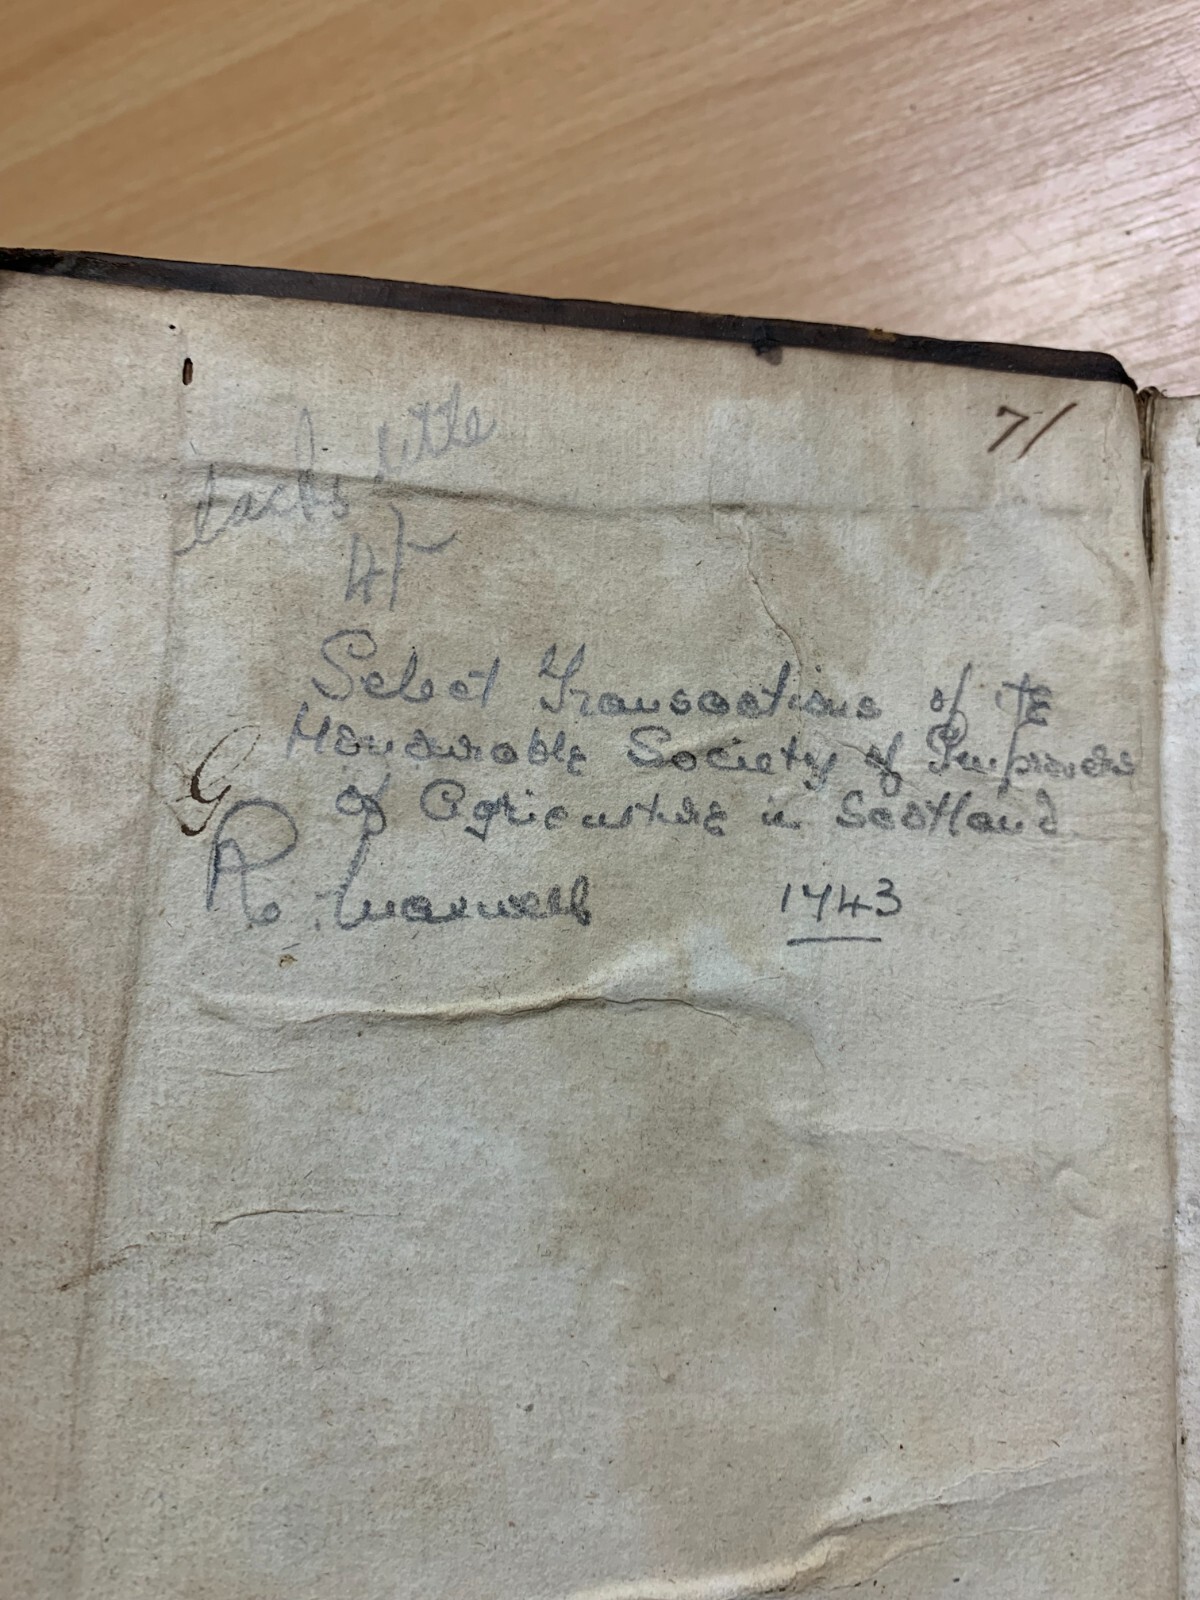 7/
lacks title
4/-
Select Transactions of the
Honourable Society of Improvers
G
of Agriculture in Scotland
Ro. Maxwell 1743